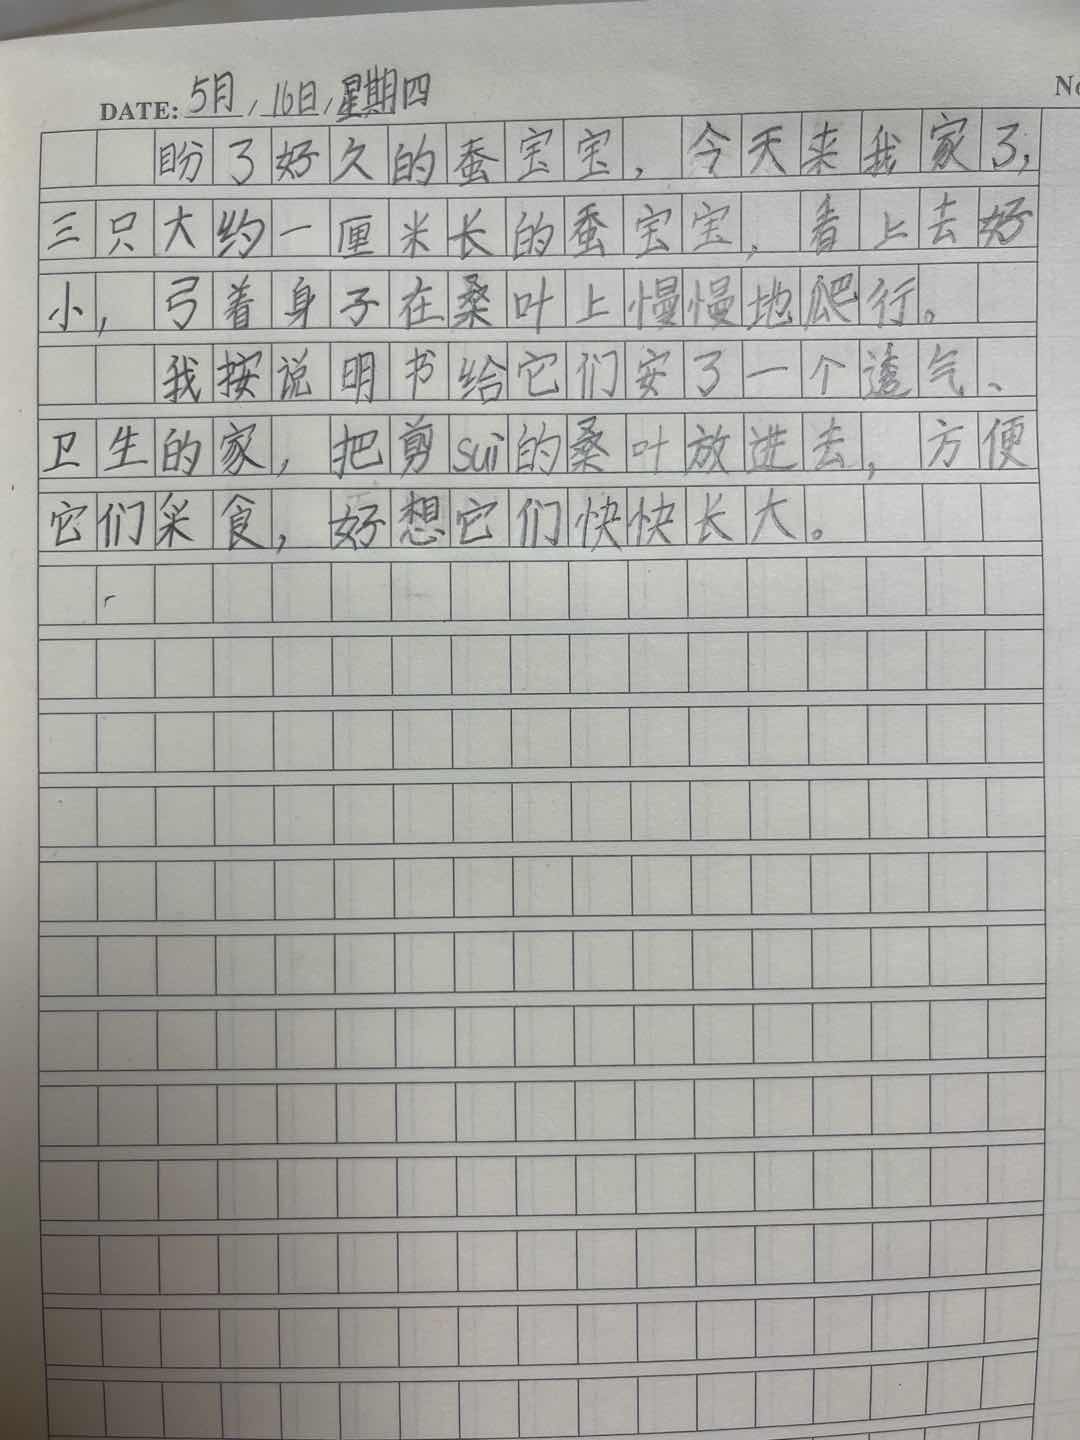 DATE: 5月/16日/星期四
No
盼了好久的蚕宝宝，今天来我家了，
三只大约一厘米长的蚕宝宝，看上去好
小，弓着身子在桑叶上慢慢地爬行。
我按说明书给它们安了一个透气、
卫生的家，把剪sui的桑叶放进去，方便
它们采食，好想它们快快长大。